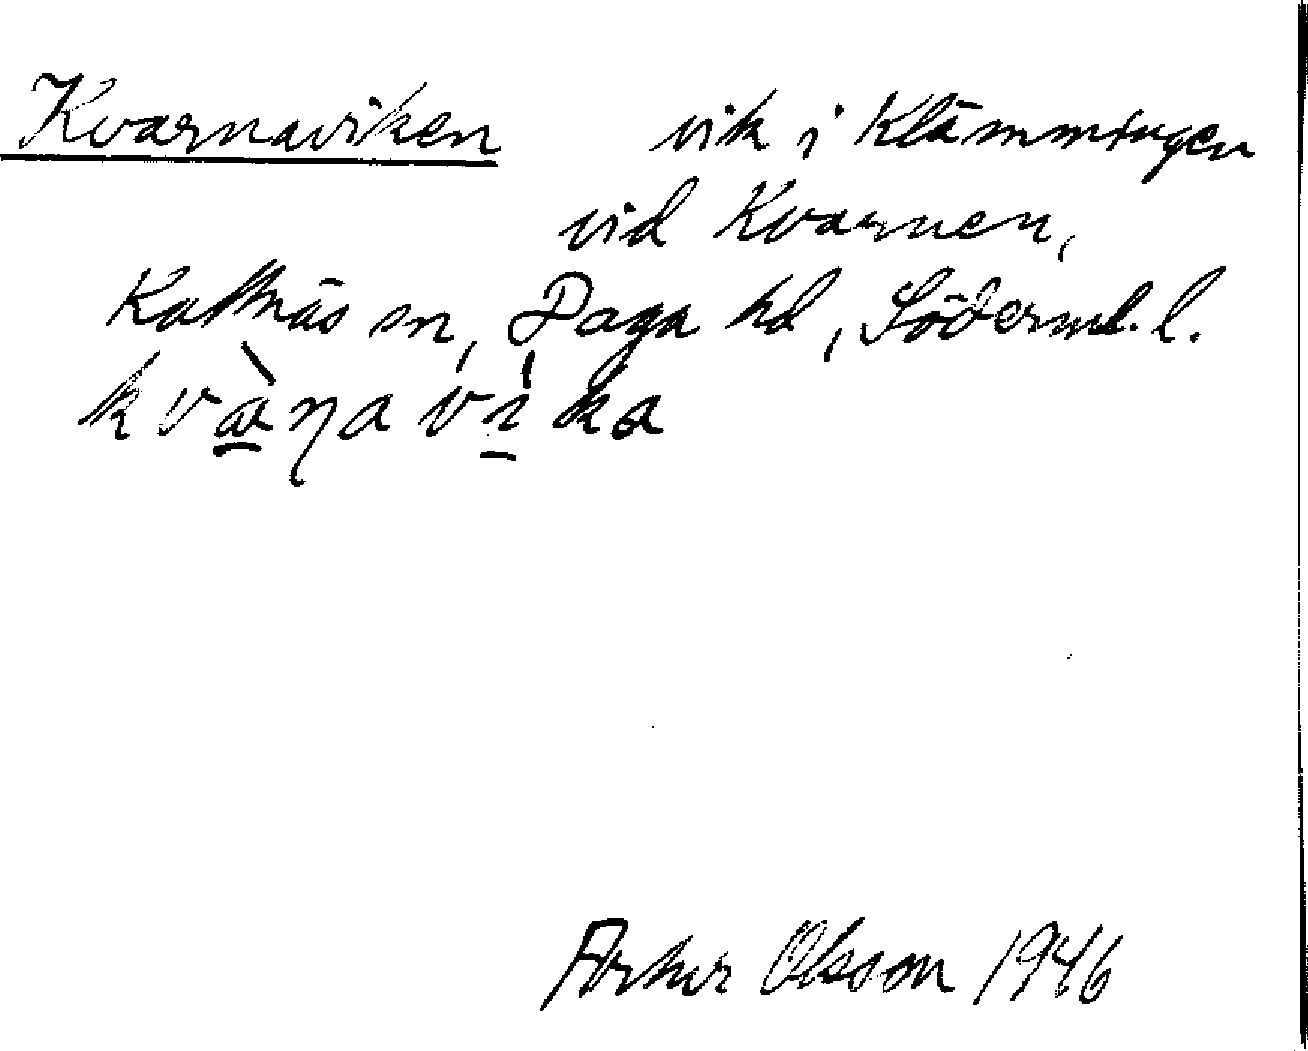 Kvarnaviken vik i Klämmingen
vid Kvarnen,
Kattnäs sn, Daga hd, Söderml. l.
kvàṇavìka
Olsson 1946